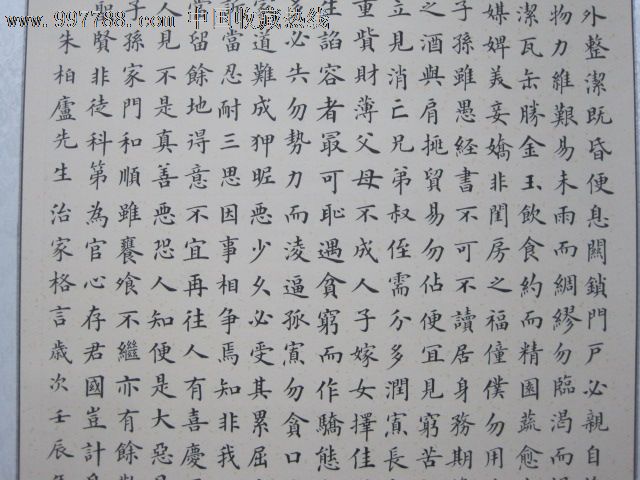 www.997788.com 中国收藏热线
外整潔既昏便息關鎖門戶必親自
物力維艱易未雨而綢繆勿臨渴而
潔瓦缶勝金玉飲食約而精園蔬愈
媒婢美妾嬌非閨房之福僮僕勿用
子孫雖愚經書不可不讀居身務期
之酒與肩挑貿易勿佔便宜見窮苦
立見消亡兄弟叔侄需分多潤寡長
重貲財薄父母不成人子嫁女擇佳
生諂容者最可恥遇貧窮而作驕態
多必失勿勢力而凌逼孤寡勿貪口
家道難成狎昵惡少久必受其累屈
訴當忍耐三思因事相爭焉知非我
留餘地得意不宜再往人有喜慶
人見不是真善惡恐人知便是大惡
子孫家門和順雖饔飧不繼亦有餘
聖賢非徒科第為官心存君國豈計
朱柏廬先生治家格言歲次壬辰